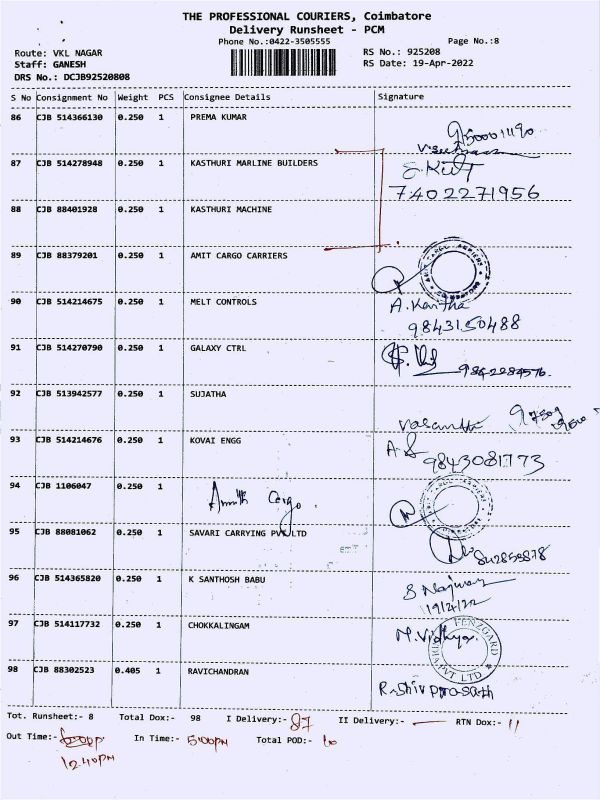 THE PROFESSIONAL COURIERS, Coimbatore
Delivery Runsheet - PCM
Phone No.:0422-3505555 Page No.:8
Route: VKL NAGAR RS No.: 925208
Staff: GANESH RS Date: 19-Apr-2022
DRS No.: DCJB92520808
S No Consignment No Weight PCS Consignee Details Signature
86 CJB 514366130 0.250 1 PREMA KUMAR
87 CJB 514278948 0.250 1 KASTHURI MARLINE BUILDERS
7402271956
88 CJB 88401928 0.250 1 KASTHURI MACHINE
89 CJB 88379201 0.250 1 AMIT CARGO CARRIERS
90 CJB 514214675 0.250 1 MELT CONTROLS
A. Kavitha
98431 50488
91 CJB 514270790 0.250 1 GALAXY CTRL
92 CJB 513942577 0.250 1 SUJATHA
93 CJB 514214676 0.250 1 KOVAI ENGG
9843081773
94 CJB 1106047 0.250 1 Cargo
95 CJB 88081062 0.250 1 SAVARI CARRYING PVT LTD
96 CJB 514365820 0.250 1 K SANTHOSH BABU
19/4/22
97 CJB 514117732 0.250 1 CHOKKALINGAM
M. Vidhya
FENZGARD INDIA PVT LTD
98 CJB 88302523 0.405 1 RAVICHANDRAN
R. Shiv prasath
Tot. Runsheet:- 8 Total Dox:- 98 I Delivery:- 87 II Delivery:- — RTN Dox:- 11
Out Time:- In Time:- 5:00PM Total POD:-
12.40PM